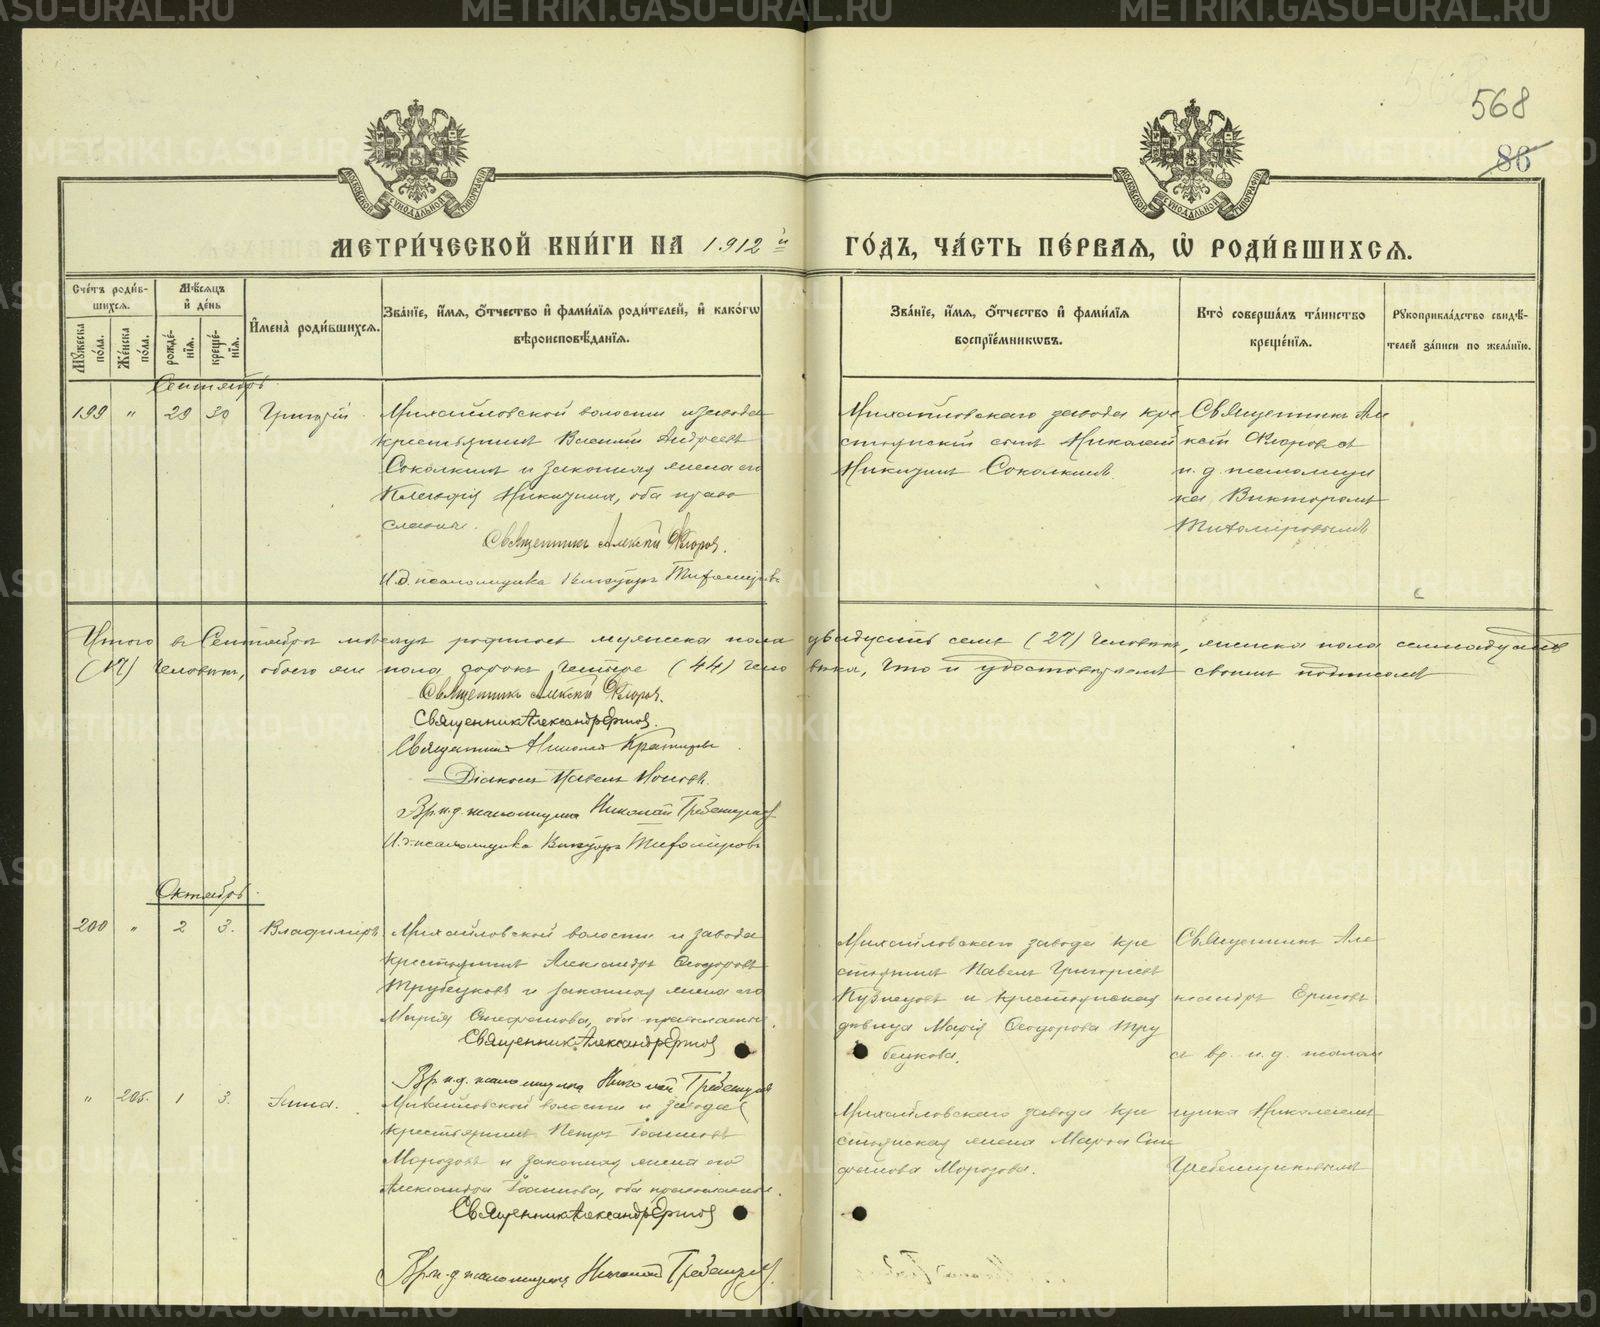 568
86
МОСКОВСКОЙ СѴНОДАЛЬНОЙ ТИПОГРАФІИ
МОСКОВСКОЙ СѴНОДАЛЬНОЙ ТИПОГРАФІИ
МЕТРИ́ЧЕСКОЙ КНИ́ГИ НА 1912 й ГО́ДЪ, ЧА́СТЬ ПЕ́РВАЯ, Ѿ РОДИ́ВШИХСѦ.
Сче́тъ роди́в-
шихсѧ.
Мꙋ́жеска по́ла.
Же́нска по́ла.
Мѣ́сѧцъ
и҆ де́нь
рожде́-
нїѧ.
креще́-
нїѧ.
И҆мена̀ роди́вшихсѧ.
Зва́нїе, и҆́мѧ, ѻ҆́тчество и҆ фами́лїѧ роди́телей, и҆ како́гѡ
вѣроисповѣ́данїѧ.
Зва́нїе, и҆́мѧ, ѻ҆́тчество и҆ фами́лїѧ
воспрїе́мникѡвъ.
Кто̀ соверша́лъ та́инство
креще́нїѧ.
Рꙋкоприкла́дство свидѣ́-
телей за́писи по жела́нїю.
Сентябрь
199 " 29 30 Григорій
Михайловской волости и завода
крестьянинъ Василій Андреевъ
Соколкинъ и законная жена его
Никитина, оба право
славные.
Священникъ Алексій Флоровъ.
И.д. псаломщика Викторъ Тихоміровъ
Михайловскаго завода кре
стьянскій сынъ Николай
Никитинъ Соколкинъ.
Священникъ Але
ксій Флоровъ съ
и. д. псаломщи
ка Викторомъ
Тихоміровымъ
Итого въ Сентябрѣ мѣсяцѣ родилось мужеска пола двадцать семь (27) человѣкъ, женска пола семнадцать
(17) человѣкъ, обоего же пола сорокъ четыре (44) чело вѣка, что и удостовѣряемъ своимъ подписомъ
Священникъ Алексій Флоровъ.
Священник Александр Ершов.
Священникъ Николай
Діаконъ Павелъ Поповъ.
Вр. и.д. псаломщика Николай Гребенщиков
И.д. псаломщика Викторъ Тихоміровъ
Октябрь.
200 " 2 3. Владиміръ
Михайловской волости и завода
крестьянинъ Александръ Ѳеодоровъ
Трубецковъ и законная жена его
Марія Стефанова, оба православные.
Священник Александр Ершов
Вр. и.д. псаломщика Николай Гребенщиков
Михайловскаго завода кре
стьянинъ Павелъ Григоріевъ
Кузнецовъ и крестьянская
дѣвица Марія Ѳеодорова Тру
бецкова.
Священникъ Але
ксандръ Ершовъ
съ вр. и. д. псалом
щика Николаемъ
Гребенщиковымъ
" 205. 1 3. Анна.
Михайловской волости и завода
крестьянинъ Петръ Іоанновъ
Морозовъ и законная жена его
Александра Іоаннова, оба православные.
Священник Александр Ершов
Вр. и.д. псаломщика Николай Гребенщиков
Михайловскаго завода кре
стьянская жена Марѳа
Морозова.
METRIKI.GASO-URAL.RU